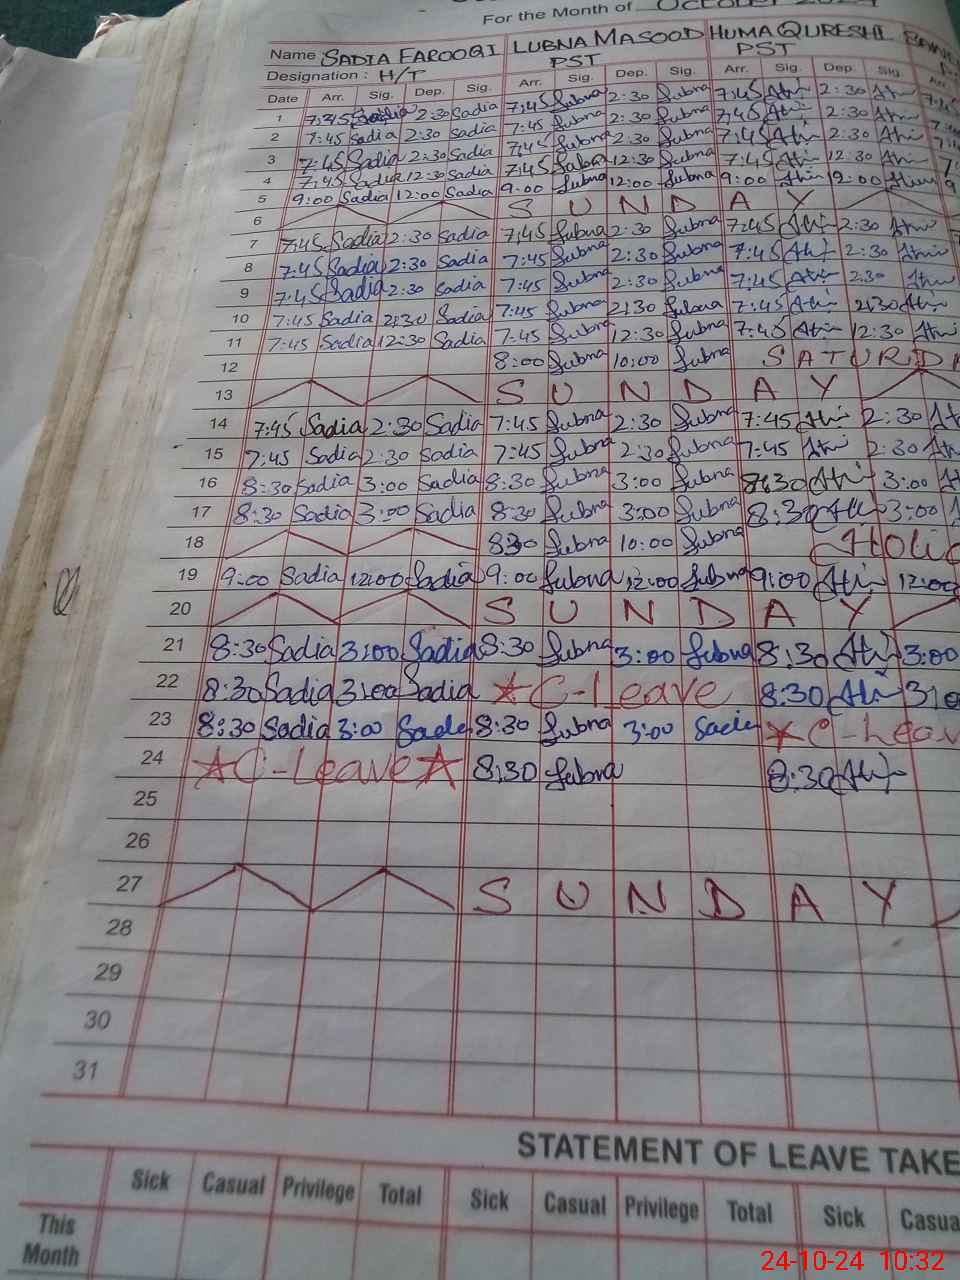 For the Month of October
Name SADIA FAROOQI LUBNA MASOOD HUMA QURESHI
Designation : H/T PST PST
Date Arr. Sig. Dep. Sig. Arr. Sig. Dep. Sig. Arr. Sig. Dep. Sig. Arr.
1 7:45 Sadia 2:30 Sadia 7:45 Lubna 2:30 Lubna 7:45 2:30
2 7:45 Sadia 2:30 Sadia 7:45 Lubna 2:30 Lubna 7:45 2:30
3 7:45 Sadia 2:30 Sadia 7:45 Lubna 2:30 Lubna 7:45 2:30
4 7:45 Sadia 12:30 Sadia 7:45 Lubna 12:30 Lubna 7:45 12:30
5 9:00 Sadia 12:00 Sadia 9:00 Lubna 12:00 Lubna 9:00 12:00 9
6 S U N D A Y
7 7:45 Sadia 2:30 Sadia 7:45 Lubna 2:30 Lubna 7:45 2:30
8 7:45 Sadia 2:30 Sadia 7:45 Lubna 2:30 Lubna 7:45 2:30
9 7:45 Sadia 2:30 Sadia 7:45 Lubna 2:30 Lubna 7:45 2:30
10 7:45 Sadia 2:30 Sadia 7:45 Lubna 2:30 Lubna 7:45 2:30
11 7:45 Sadia 12:30 Sadia 7:45 Lubna 12:30 Lubna 7:45 12:30
12 8:00 Lubna 10:00 Lubna S A T U R D A
13 S U N D A Y
14 7:45 Sadia 2:30 Sadia 7:45 Lubna 2:30 Lubna 7:45 2:30
15 7:45 Sadia 2:30 Sadia 7:45 Lubna 2:30 Lubna 7:45 2:30
16 8:30 Sadia 3:00 Sadia 8:30 Lubna 3:00 Lubna 8:30 3:00
17 8:30 Sadia 3:00 Sadia 8:30 Lubna 3:00 Lubna 8:30 3:00
18 8:30 Lubna 10:00 Lubna Holid
19 9:00 Sadia 12:00 Sadia 9:00 Lubna 12:00 Lubna 9:00 12:00
20 S U N D A Y
21 8:30 Sadia 3:00 Sadia 8:30 Lubna 3:00 Lubna 8:30 3:00
22 8:30 Sadia 3:00 Sadia C-Leave 8:30 3:0
23 8:30 Sadia 3:00 Sadia 8:30 Lubna 3:00 Sadia C-Leav
24 C-Leave 8:30 Lubna 8:30
25
26
27 S U N D A Y
28
29
30
31
STATEMENT OF LEAVE TAKE
Sick Casual Privilege Total Sick Casual Privilege Total Sick Casua
This Month
24-10-24 10:32